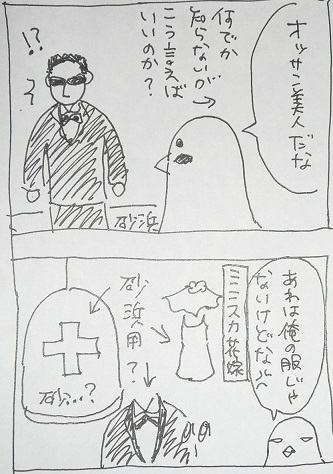 オッサン美人だな
何でか
知らないが
こう言えば
いいのか？
!?
砂浜
あれは俺の服じゃ
ないけどな
ミニスカ花嫁
砂浜用？
砂…？